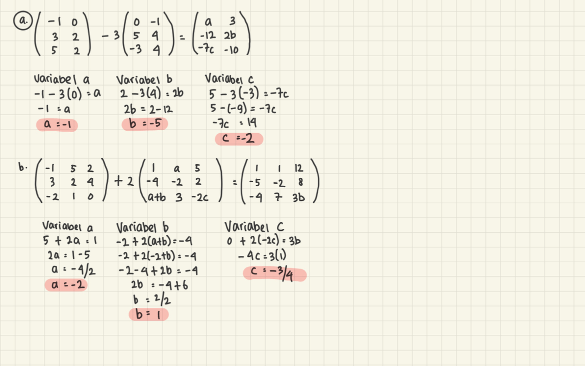 a.
-1 0
3 2
5 2
- 3
0 -1
5 4
-3 4
=
a 3
-12 2b
-7c -10
Variabel a
-1 - 3(0) = a
-1 = a
a = -1
Variabel b
2 - 3(4) = 2b
2b = 2 - 12
b = -5
Variabel c
5 - 3(-3) = -7c
5 - (-9) = -7c
-7c = 14
c = -2
b.
-1 5 2
3 2 4
-2 1 0
+ 2
1 a 5
-4 -2 2
a+b 3 -2c
=
1 1 12
-5 -2 8
-4 7 3b
Variabel a
5 + 2a = 1
2a = 1 - 5
a = -4/2
a = -2
Variabel b
-2 + 2(a+b) = -4
-2 + 2(-2+b) = -4
-2 - 4 + 2b = -4
2b = -4 + 6
b = 2/2
b = 1
Variabel C
0 + 2(-2c) = 3b
-4c = 3(1)
c = -3/4